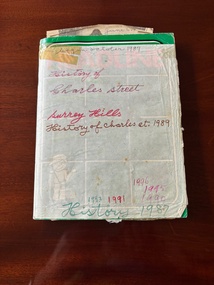 October 1989
History of
Charles Street
Surrey Hills
History of Charles st. 1989
1990
1991
1995
History 1989